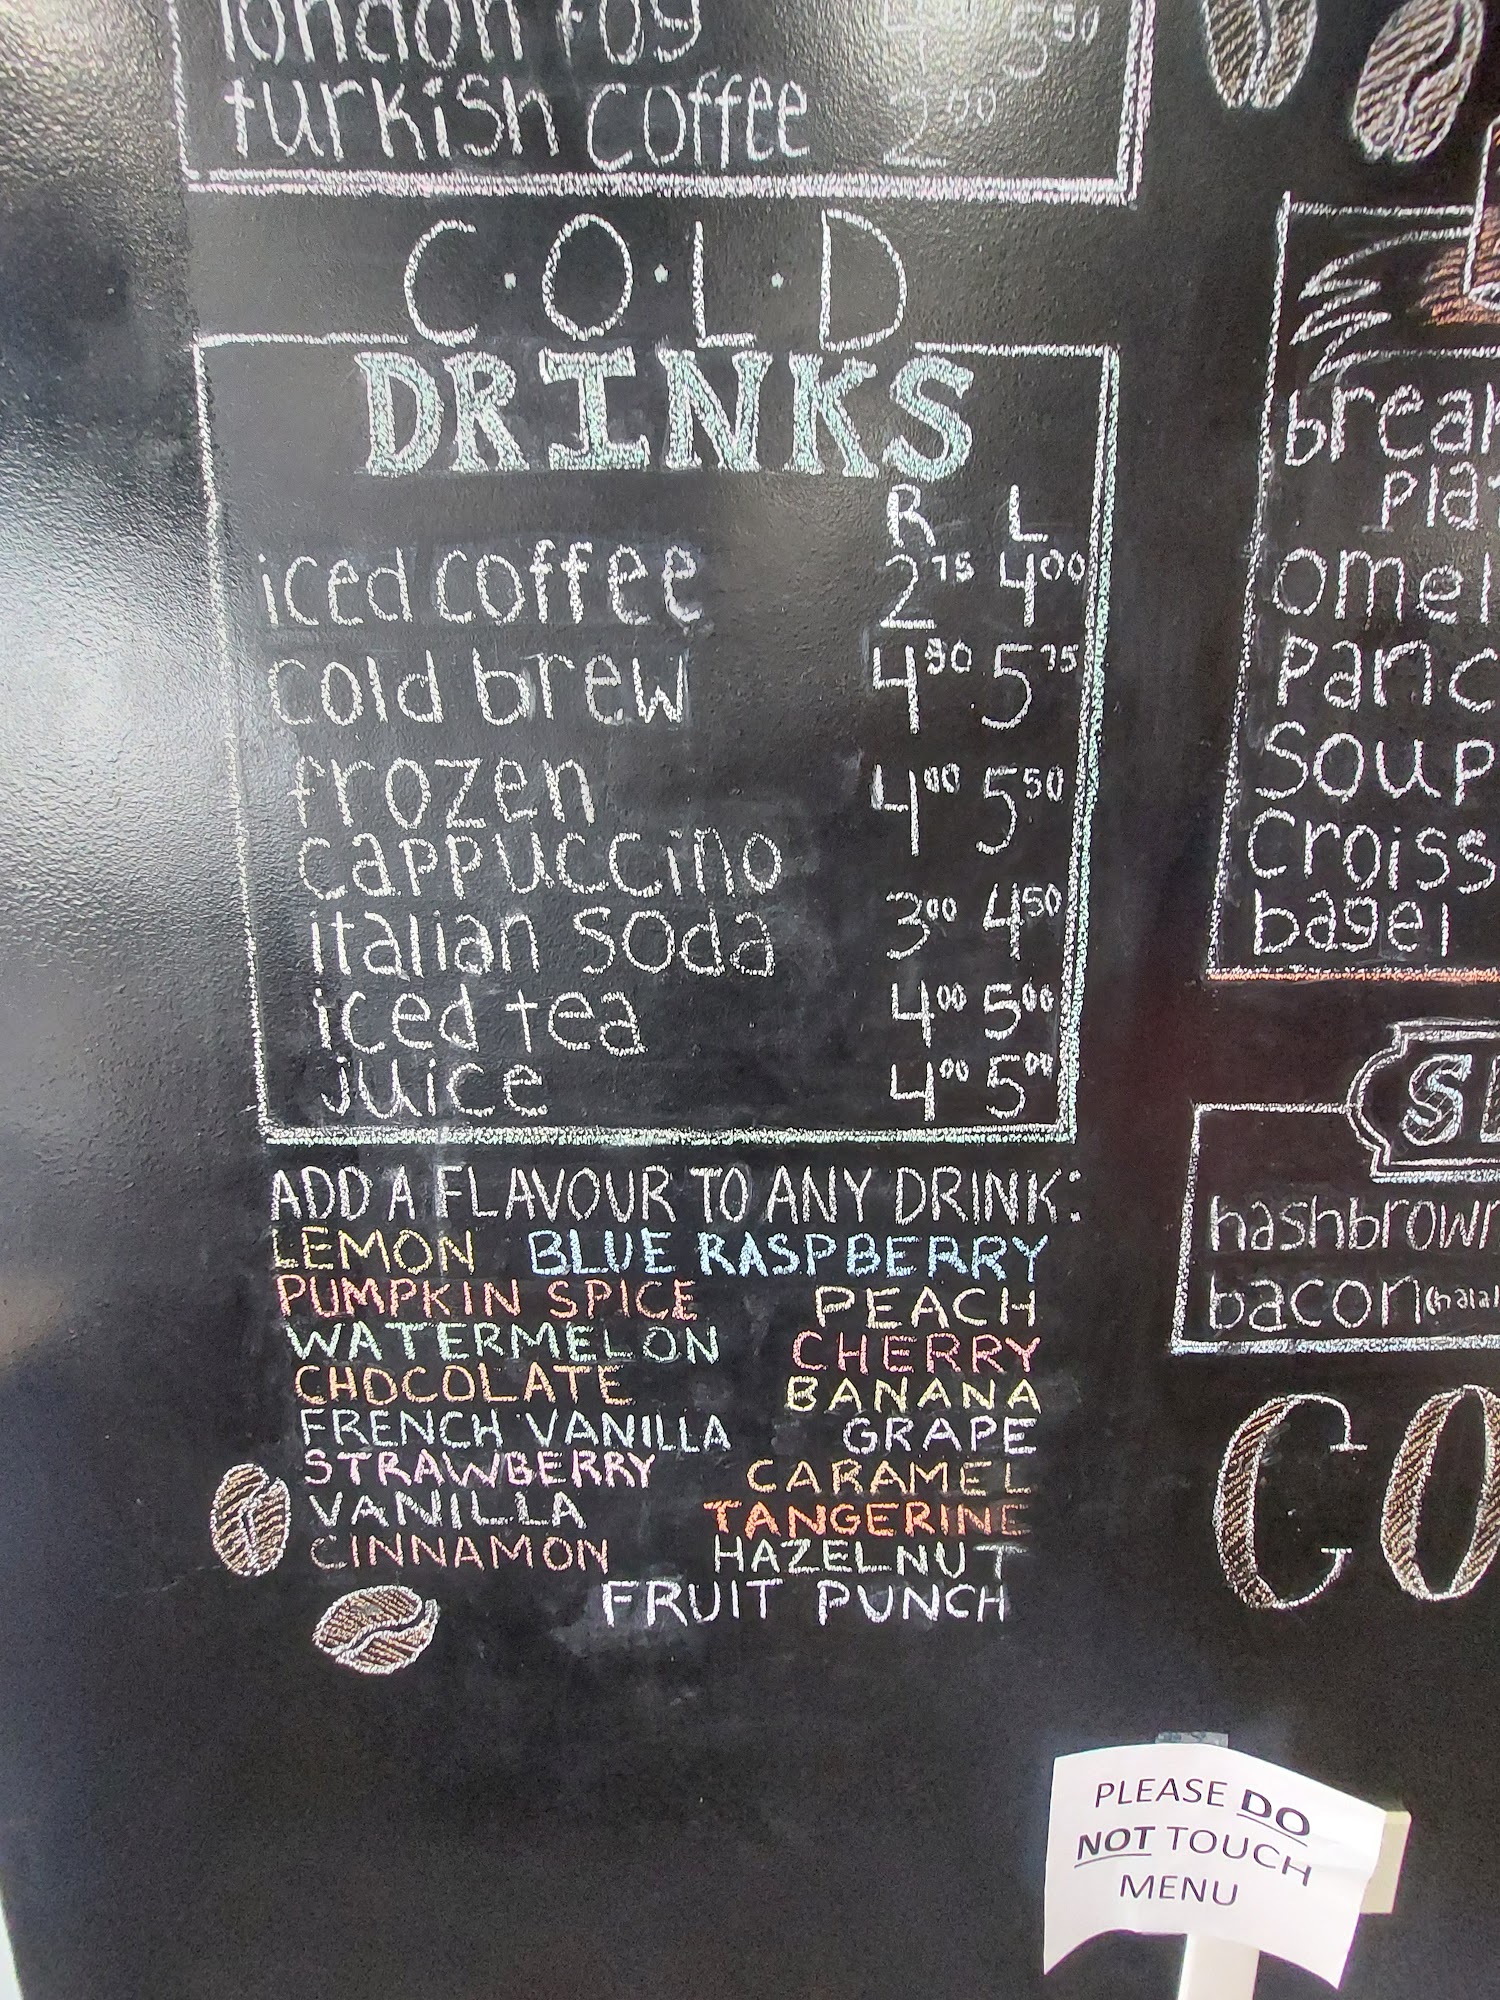 london fog 5 50
turkish coffee 2 00
C·O·L·D
DRINKS
R L
iced coffee 2 75 4 00
cold brew 4 50 5 75
frozen 4 00 5 50
cappuccino
italian soda 3 00 4 50
iced tea 4 00 5 00
juice 4 00 5 00
ADD A FLAVOUR TO ANY DRINK:
LEMON BLUE RASPBERRY
PUMPKIN SPICE PEACH
WATERMELON CHERRY
CHOCOLATE BANANA
FRENCH VANILLA GRAPE
STRAWBERRY CARAMEL
VANILLA TANGERINE
CINNAMON HAZELNUT
FRUIT PUNCH
Soup
bagel
bacon
PLEASE DO
NOT TOUCH
MENU